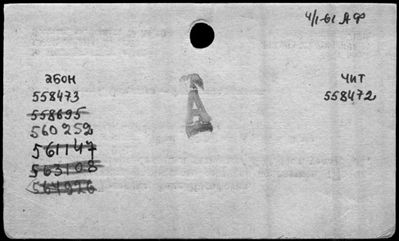 4/I-61 АФ
абон
558473
558695
560252
561147
563108
564926
А
Чит
558472